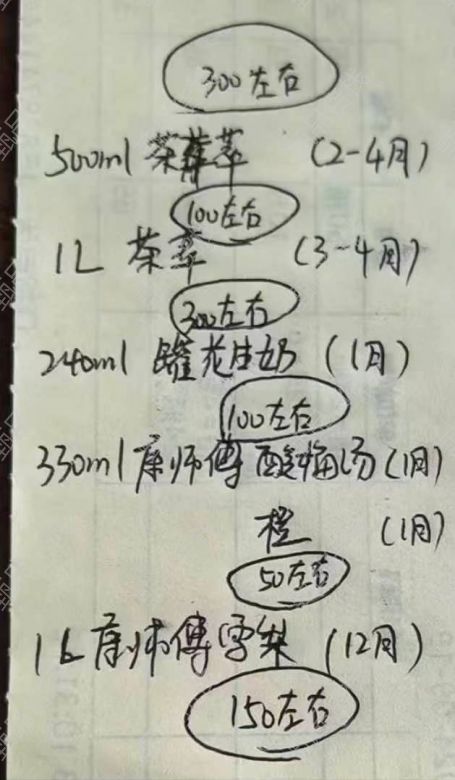 300左右
500ml 茶萃 (2-4月)
100左右
1L 茶萃 (3-4月)
300左右
240ml 罐花生奶 (1月)
100左右
330ml 康师傅 酸梅汤 (1月)
橙 (1月)
50左右
1L 康师傅雪梨 (12月)
150左右